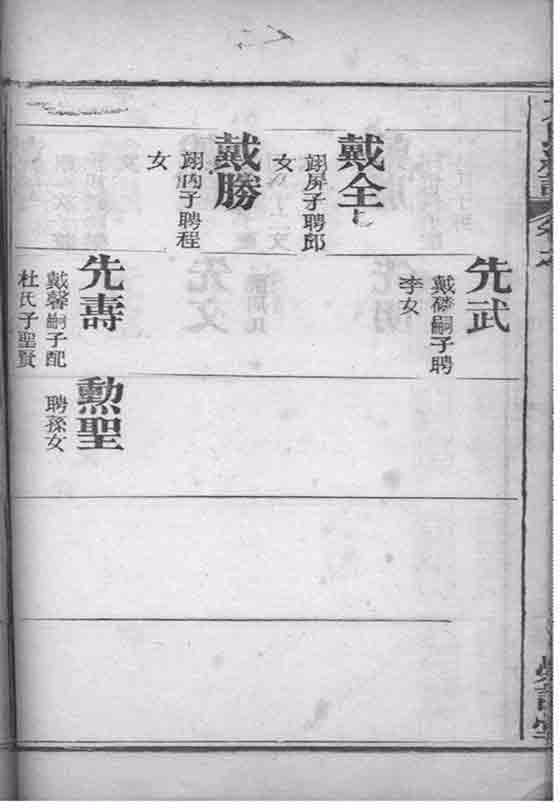 先武
戴磻嗣子聘
李女
戴全
翊屏子聘邱
女
戴勝
翊丙子聘程
女
先壽
戴馨嗣子配
杜氏子聖賢
勲聖
聘孫女